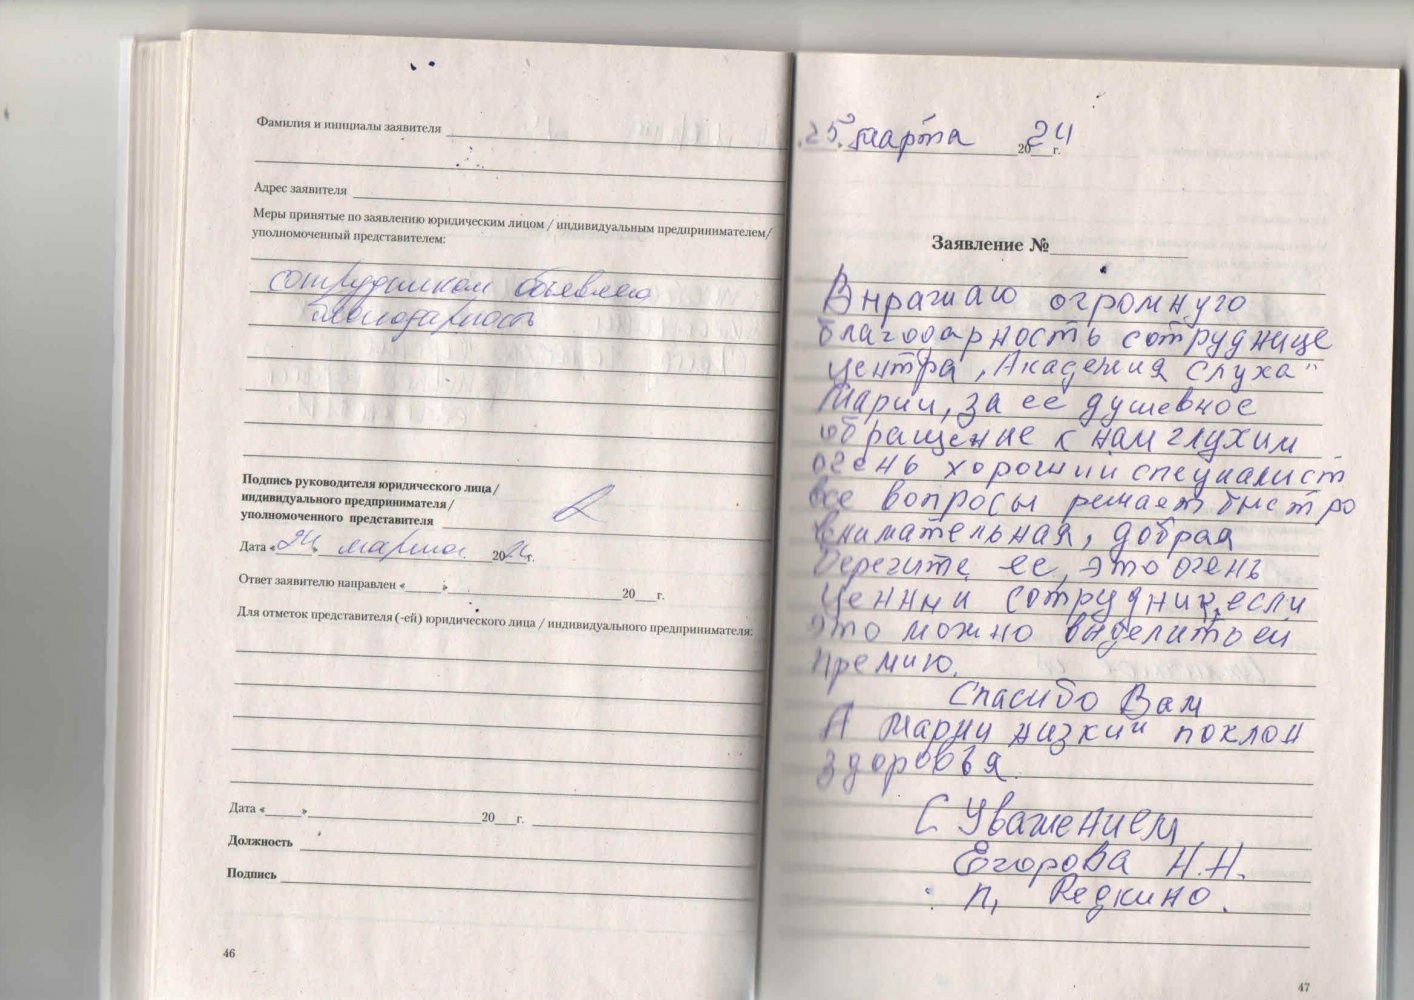 Фамилия и инициалы заявителя
Адрес заявителя
Меры принятые по заявлению юридическим лицом / индивидуальным предпринимателем/
уполномоченный представителем:
сотрудникам объявлена
благодарность
Подпись руководителя юридического лица/
индивидуального предпринимателя/
уполномоченного представителя
Дата «24» марта 2024г.
Ответ заявителю направлен «___»___20___г.
Для отметок представителя (-ей) юридического лица / индивидуального предпринимателя:
Дата «___»___20___г.
Должность
Подпись
46
25. марта 2024 г.
Заявление №
Выражаю огромную
благодарность сотруднице
центра „Академия слуха"
Марии, за ее душевное
обращение к нам глухим
очень хороший специалист
все вопросы решает быстро
внимательная, добрая
берегите ее, это очень
ценный сотрудник, если
это можно выделить ей
премию.
Спасибо Вам
А Марии низкий поклон
здоровья.
С Уважением
Егорова Н.Н.
п, Редкино.
47